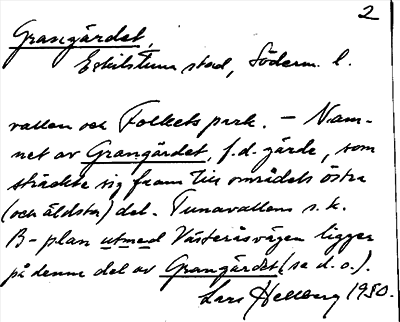 2
Grangärdet,
Eskilstuna stad, Söderm. l.
vallen och Folkets park. – Nam-
net av Grangärdet, f.d. gärde, som
sträckte sig fram till områdets östra
(och äldsta) del. Tunavallens s.k.
B-plan utmed Västeråsvägen ligger
på denna del av Grangärdet (se d.o.).
Lars Hellberg 1980.